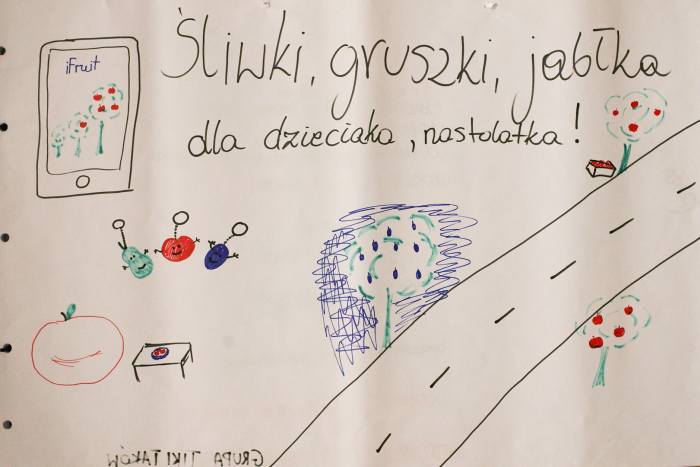 iFruit
Śliwki, gruszki, jabłka
dla dzieciaka, nastolatka!
GRUPA TIKI TAKÓW